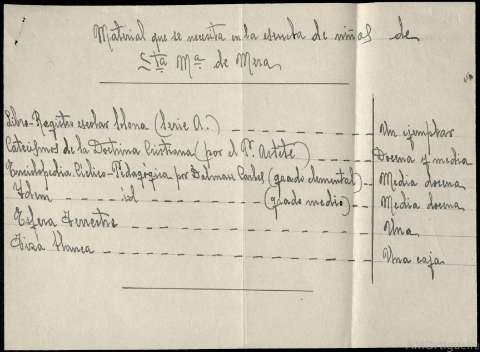 Material que se necesita en la escuela de niñas de
Sta Ma. de Mera.
Libro-Registro escolar Solana (Serie A.) Un ejemplar
Catecismos de la Doctrina Cristiana (por el P. Astete) Docena y media
Enciclopedia Cíclico-Pedagógica por Dalmau Carles (grado elemental) Media docena
Idem id (grado medio) Media docena
Esfera terrestre Una
Tiza blanca Una caja